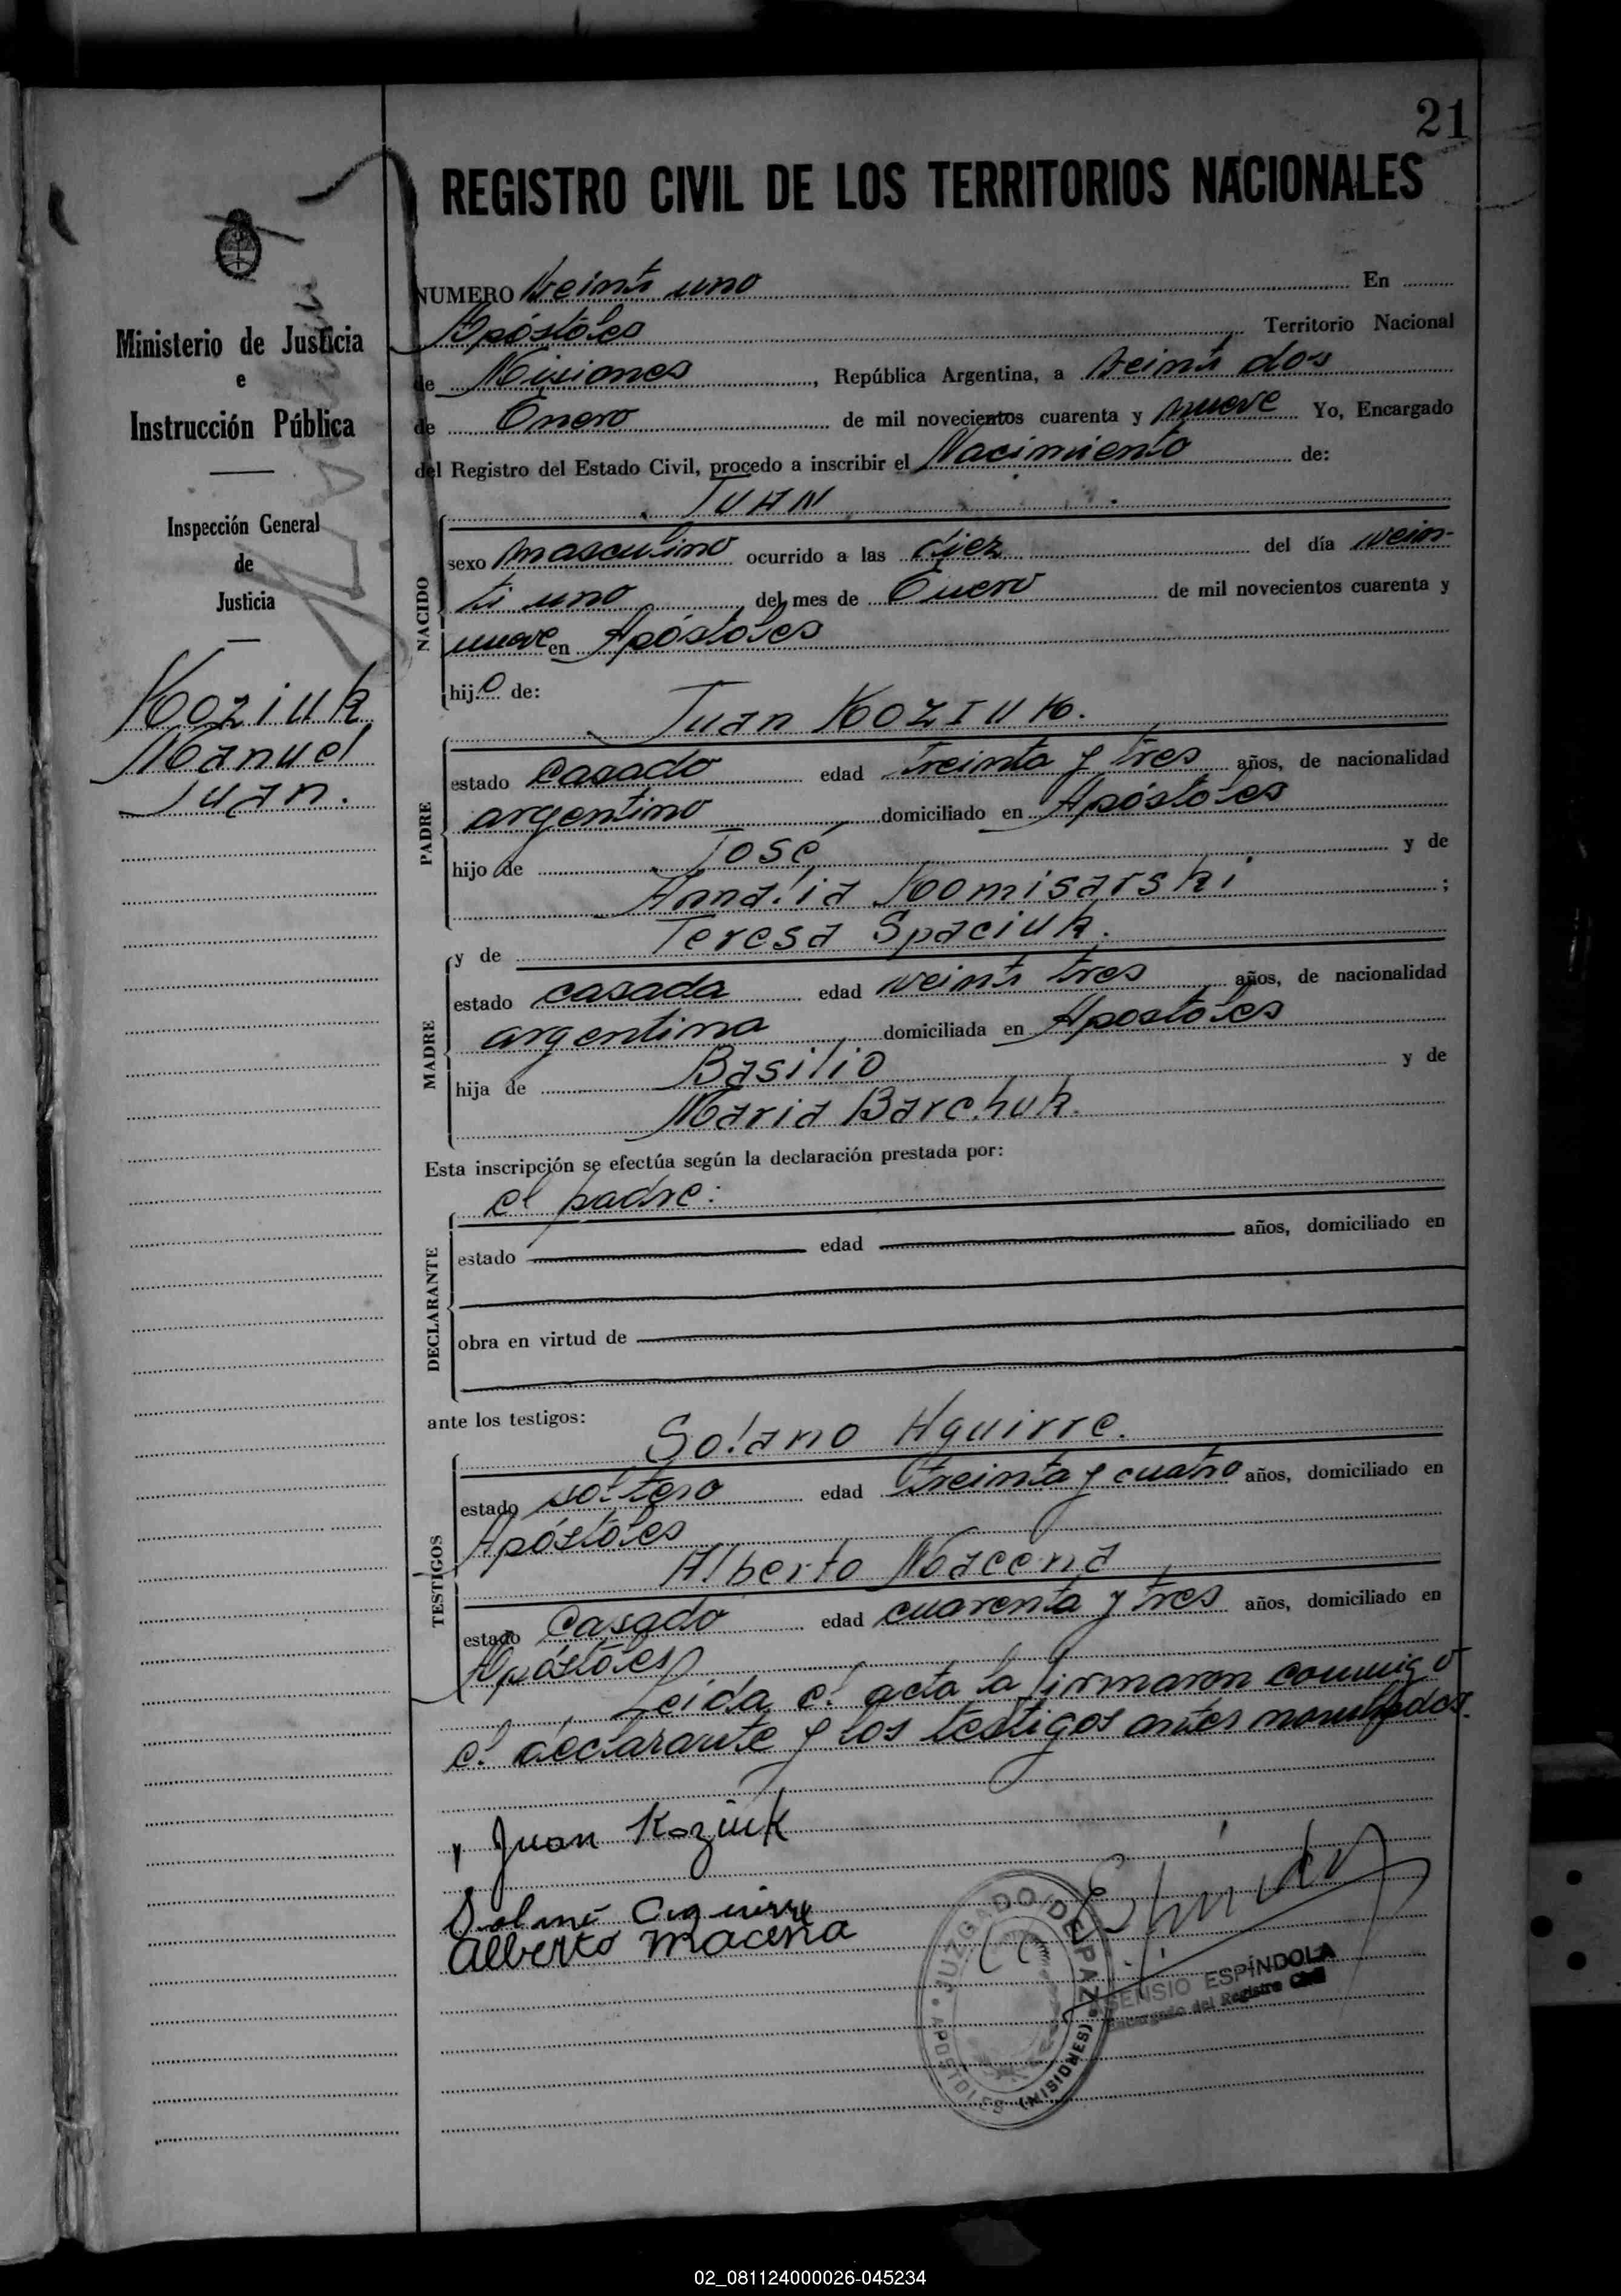 21
REGISTRO CIVIL DE LOS TERRITORIOS NACIONALES
Ministerio de Justicia
e
Instrucción Pública
Inspección General
de
Justicia
Koziuk
Manuel
Juan.
NUMERO veinti uno En
Apóstoles Territorio Nacional
de Misiones, República Argentina, a veinti dos
de Enero de mil novecientos cuarenta y nueve Yo, Encargado
del Registro del Estado Civil, procedo a inscribir el Nacimiento de:
JUAN
NACIDO
sexo masculino ocurrido a las diez del día vein-
ti uno del mes de Enero de mil novecientos cuarenta y
nueve en Apóstoles
hijo de:
Juan KOZIUK.
PADRE
estado casado edad treinta y tres años, de nacionalidad
argentino domiciliado en Apóstoles
hijo de José y de
Komisarski;
y de Teresa Spaciuk.
MADRE
estado casada edad veinti tres años, de nacionalidad
argentina domiciliada en Apostoles
hija de Basilio y de
Maria Barchuk.
Esta inscripción se efectúa según la declaración prestada por:
el padre:
DECLARANTE
estado edad años, domiciliado en
obra en virtud de
ante los testigos:
Solano Aguirre.
TESTIGOS
estado soltero edad treinta y cuatro años, domiciliado en
Apóstoles
Alberto Macena
estado casado edad cuarenta y tres años, domiciliado en
Apóstoles
Leida el acta la firmaron conmigo
el declarante y los testigos antes nombrados.
Juan Koziuk
Solano Aguirre
Alberto Macena
JUZGADO DE PAZ
APOSTOLES (MISIONES)
ESPÍNDOLA
Encargado del Registro Civil
02_081124000026-045234